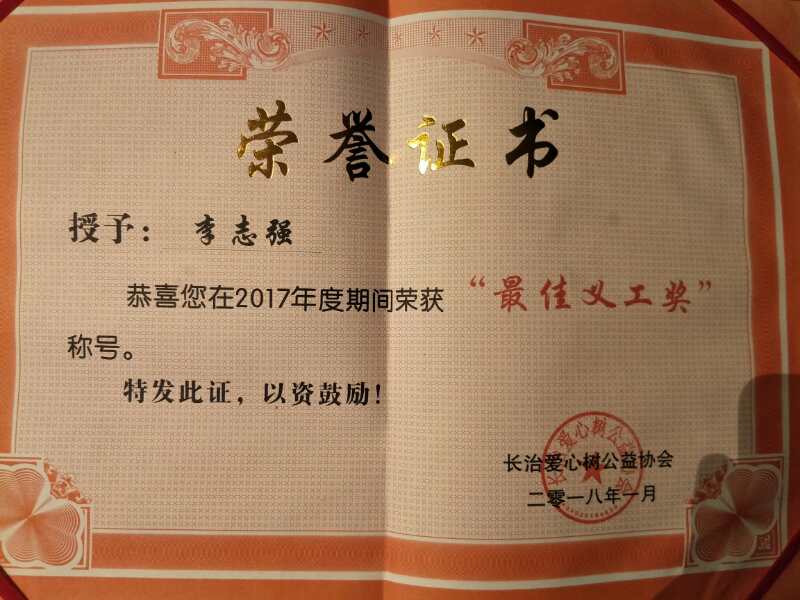 荣誉证书
授予： 李志强
恭喜您在2017年度期间荣获 “最佳义工奖”
称号。
特发此证，以资鼓励！
长治爱心树公益协会
二零一八年一月
长治爱心树公益协会